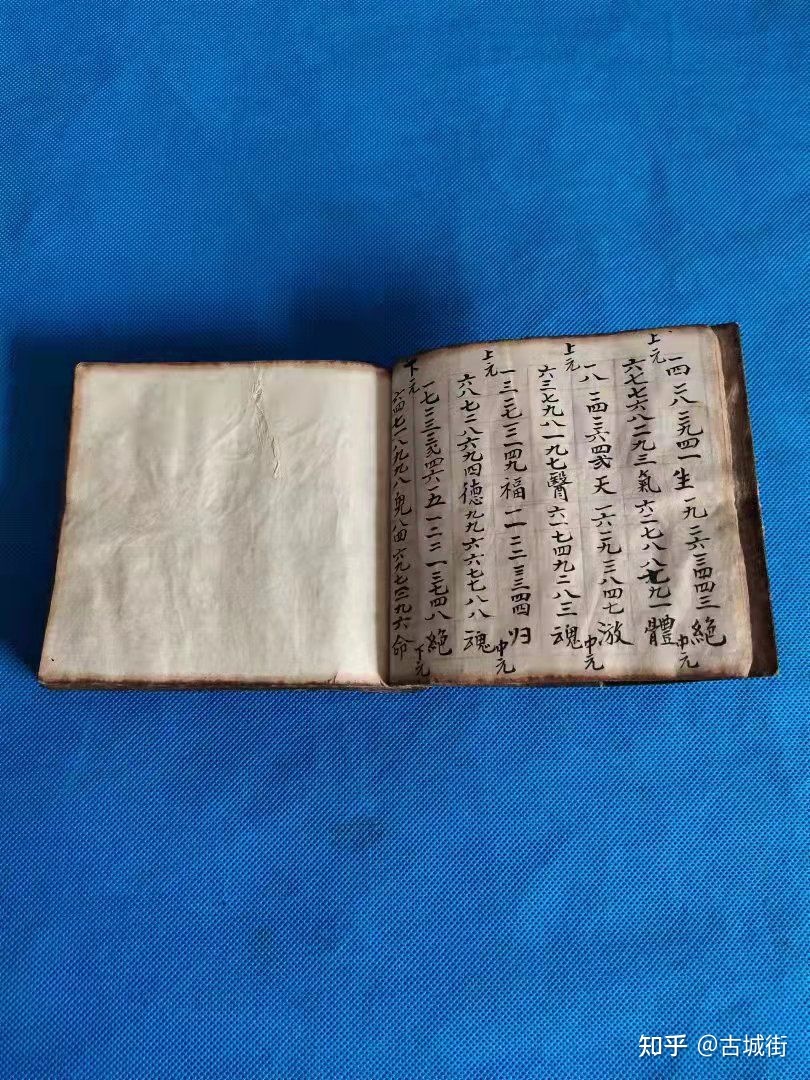 上元
一四二八三九四一生一九二六三四四三絕
六七七六八二九三氣六二七八八七九一體
中元
上元
一八二四三六四弍天一六二九三八四七游
六三七九八一九七醫六一七四九二八三魂
中元
上元
一三二七三一四九福一一二二三三四四归
六八七二八六九四德九九六六七七八八魂
中元
下元
一七二三三弍四六五一二二一三七四八絕
六四七一八九九八鬼八四六九七三九六命
下元
知乎 @古城街